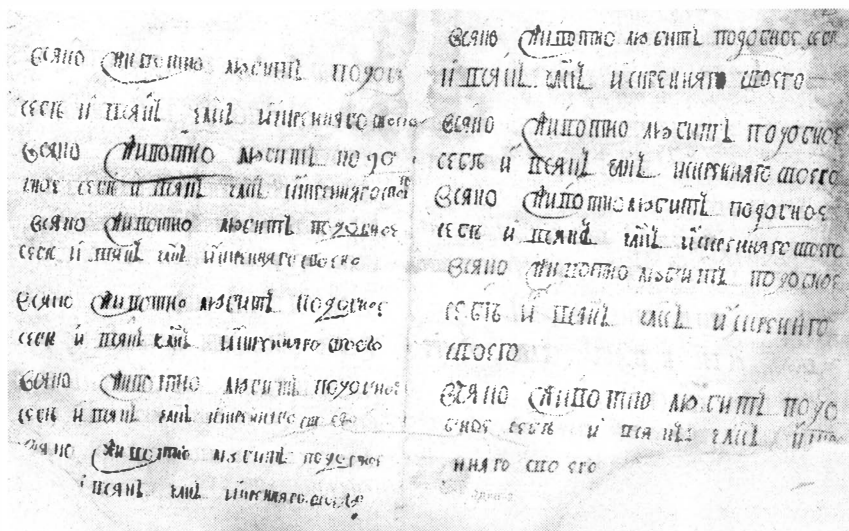 Всяко животно любитъ подобно
себѣ и всякъ члкъ искренняго своего
Всяко животно любитъ подо
бное себѣ и всякъ члкъ искренняго
Всяко животно любитъ подобное
себѣ и всякъ члкъ искренняго своего
Всяко животно любитъ подобное
себѣ и всякъ члкъ искренняго своего
Всяко животно любитъ подобное
себѣ и всякъ члкъ искренняго своего
Всяко животно любитъ подобное
и всякъ члкъ искренняго своего
Всяко животно любитъ подобное себѣ
и всякъ члкъ искренняго своего
Всяко животно любитъ подобное
себѣ и всякъ члкъ искренняго своего
Всяко животно любитъ подобное
себѣ и всякъ члкъ искренняго своего
Всяко животно любитъ подобное
себѣ и всякъ члкъ искренняго
своего
Всяко животно любитъ подо
бное себѣ и всякъ члкъ искре
нняго своего